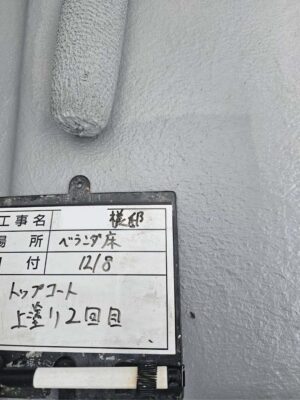 工事名 様邸
場所 ベランダ床
日付 12/8
トップコート
上塗り2回目